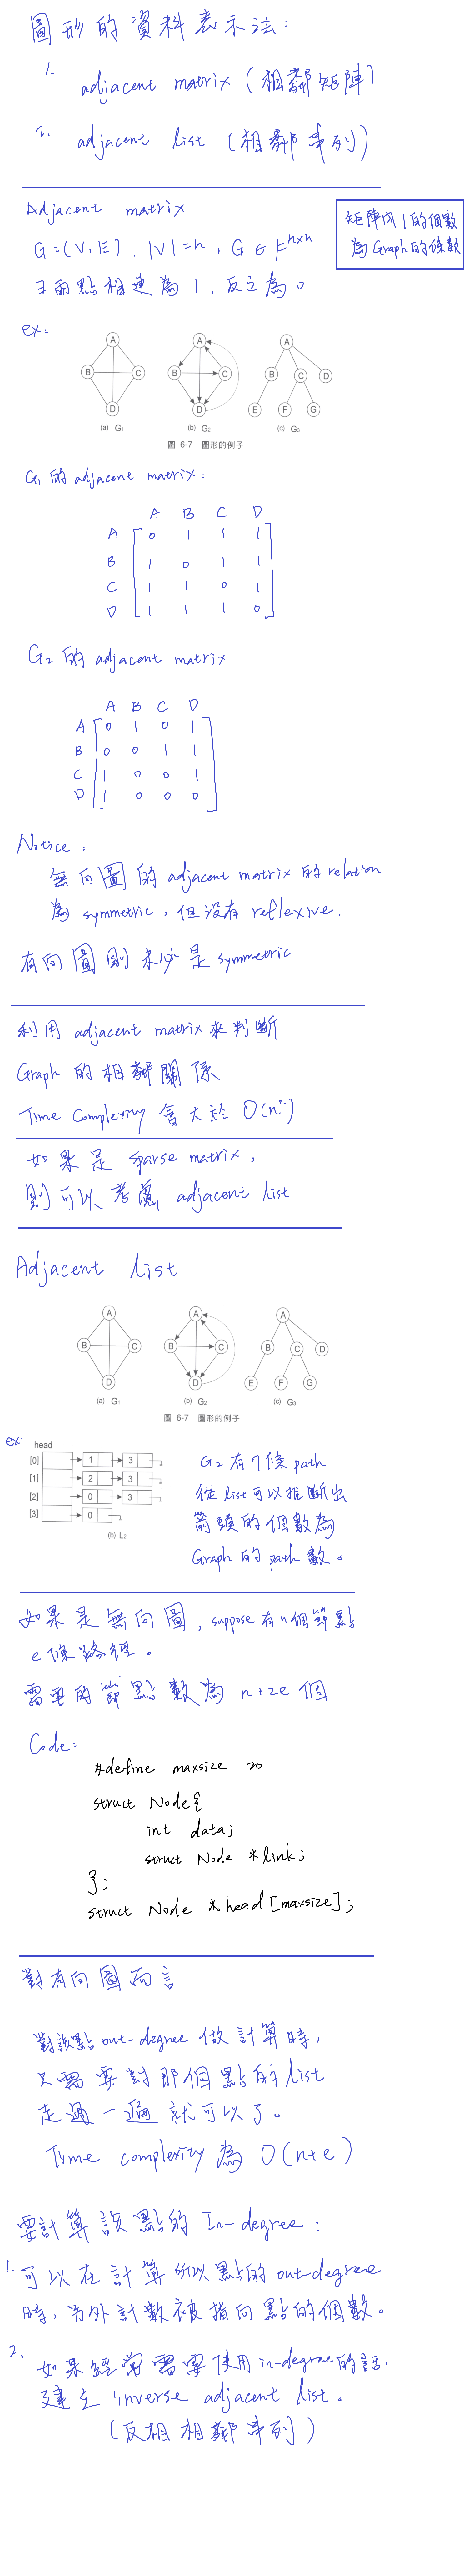 圖形的資料表示法:
1. adjacent matrix (相鄰矩陣)
2. adjacent list (相鄰串列)
Adjacent matrix
G=(V,E), |V|=n, G∈F^{n×n}
∃兩點相連為1,反之為0
矩陣內1的個數
為Graph的條數
ex:
A
B C
D
(a) G1
A
B C
D
(b) G2
A
B C D
E F G
(c) G3
圖 6-7 圖形的例子
G1 的 adjacent matrix:
A B C D
A 0 1 1 1
B 1 0 1 1
C 1 1 0 1
D 1 1 1 0
G2 的 adjacent matrix
A B C D
A 0 1 0 1
B 0 0 1 1
C 1 0 0 1
D 1 0 0 0
Notice:
無向圖的 adjacent matrix 的 relation
為 symmetric, 但沒有 reflexive.
有向圖則未必是 symmetric
利用 adjacent matrix 來判斷
Graph 的相鄰關係
Time Complexity 會大於 O(n²)
如果是 sparse matrix,
則可以考慮 adjacent list
Adjacent list
A
B C
D
(a) G1
A
B C
D
(b) G2
A
B C D
E F G
(c) G3
圖 6-7 圖形的例子
ex:
head
[0] 1 3
[1] 2 3
[2] 0 3
[3] 0
(b) L2
G2有7條path
從list可以推斷出
箭頭的個數為
Graph的path數。
如果是無向圖, suppose有n個節點
e條路徑。
需要的節點數為 n+2e 個
Code:
#define maxsize 20
struct Node{
int data;
struct Node *link;
};
struct Node *head[maxsize];
對有向圖而言
對該點out-degree 做計算時,
只需要對那個點的list
走過一遍就可以了。
Time complexity 為 O(n+e)
要計算該點的 In-degree:
1. 可以在計算所以點的out-degree
時,另外計數被指向點的個數。
2. 如果經常需要使用in-degree的話,
建立 inverse adjacent list.
(反相相鄰串列)